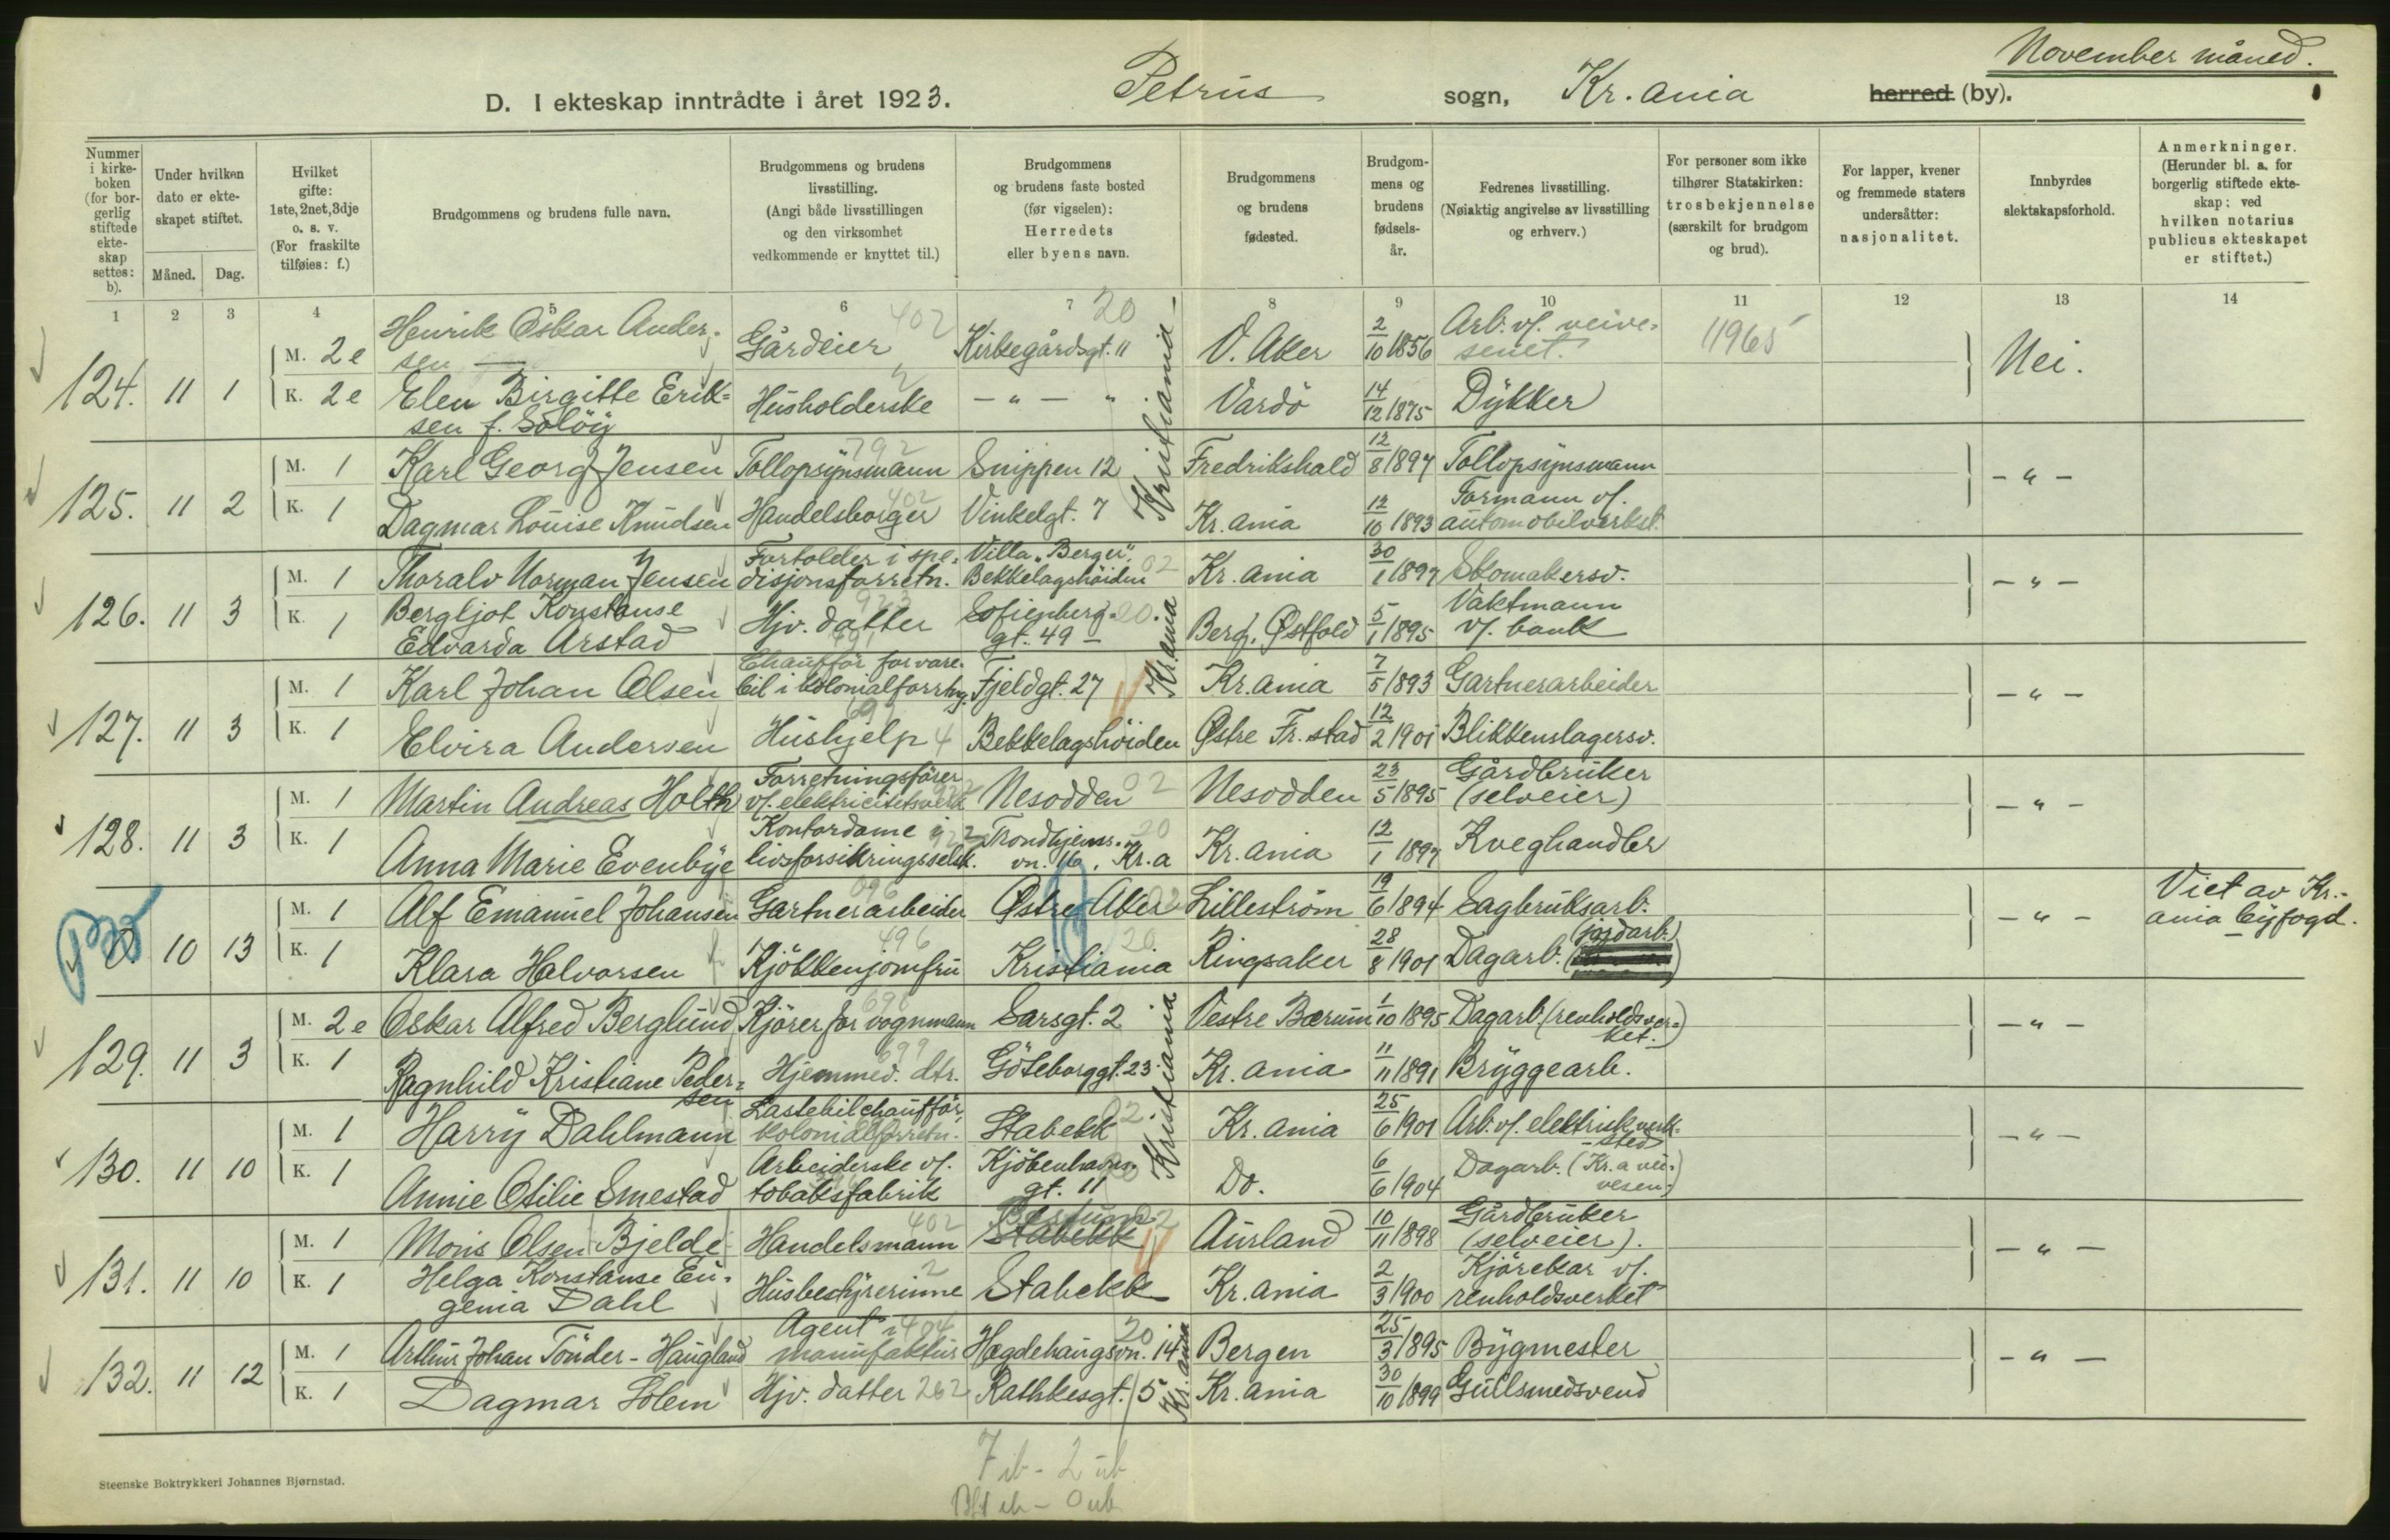 November måned.
D. I ekteskap inntrådte i året 1923. Petrus sogn, Kr.ania herred (by).
Nummer i kirkeboken (for borgerlig stiftede ekteskap settes: b).
Under hvilken dato er ekteskapet stiftet.
Måned. Dag.
Hvilket gifte: 1ste, 2net, 3dje o. s. v. (For fraskilte tilføies: f.)
Brudgommens og brudens fulle navn.
Brudgommens og brudens livsstilling. (Angi både livsstillingen og den virksomhet vedkommende er knyttet til.)
Brudgommens og brudens faste bosted (før vigselen): Herredets eller byens navn.
Brudgommens og brudens fødested.
Brudgommens og brudens fødselsår.
Fedrenes livsstilling. (Nøiaktig angivelse av livsstilling og erhverv.)
For personer som ikke tilhører Statskirken: trosbekjennelse (særskilt for brudgom og brud).
For lapper, kvener og fremmede staters undersåtter: nasjonalitet.
Innbyrdes slektskapsforhold.
Anmerkninger. (Herunder bl. a. for borgerlig stiftede ekteskap: ved hvilken notarius publicus ekteskapet er stiftet.)
1 2 3 4 5 6 7 8 9 10 11 12 13 14
124. 11 1 M. 2e Henrik Oskar Andersen Gårdeier 402 Kirkegårdsgt. 11 20 Kristiania V. Aker 2/10 1856 Arb. v/. veivesenet. 11965 Nei.
K. 2e Elen Birgitte Eriksen f. Solöy Husholderske 2 - " - " Vardö 14/12 1875 Dykker
125. 11 2 M. 1 Karl Georg Jensen Tollopsynsmann 792 Snippen 12 Fredrikshald 12/8 1897 Tollopsynsmann - " -
K. 1 Dagmar Louise Knudsen Handelsborger 402 Vinkelgt. 7 Kr.ania 12/10 1893 Formann v/. automobilverket.
126. 11 3 M. 1 Thoralv Norman Jensen Fortolder i spedisjonsforretn. Villa "Berger", Bekkelagshöiden 02 Kr.ania 30/1 1897 Skomakersv. - " -
K. 1 Bergljot Konstanse Edvarda Arstad Hjv. datter 923 Sofienberggt. 49 - 20. Kr.ania Berg, Østfold 5/1 1895 Vaktmann v/. bank
127. 11 3 M. 1 Karl Johan Olsen Chaufför for varebil i kolonialforrtng. Fjeldgt. 27 Kr.ania 7/5 1893 Gartnerarbeider - " -
K. 1 Elvira Andersen Hushjelp 4 Bekkelagshöiden Østre Fr.stad 12/2 1901 Blikkenslagersv.
128. 11 3 M. 1 Martin Andreas Holth Forretningsförer v/. elektricitetsverk Nesodden 02 Nesodden 23/5 1895 Gårdbruker (selveier) - " -
K. 1 Anna Marie Evenbye Kontordame i livsforsikringsselsk. Trondhjemsvn. 16, Kr.a 20 Kr.ania 12/1 1897 Kveghandler
10 13 M. 1 Alf Emanuel Johansen Gartnerarbeider 096 Østre Aker 02 Lilleström 19/6 1894 Sagbruksarb. - " - Viet av Kr.ania byfogd.
K. 1 Klara Halvorsen Kjökkenjomfru 496 Kristiania 20 Ringsaker 28/8 1901 Dagarb. (jordarb.)
129. 11 3 M. 2e Oskar Alfred Berglund Kjörer for vognmann 696 Sarsgt. 2 Kristiania Vestre Bærum 1/10 1895 Dagarb. (renholdsverket.) - " -
K. 1 Ragnhild Kristiane Pedersen Hjemmev. dtr. 699 Göteborggt. 23 Kr.ania 11/11 1891 Bryggearb.
130. 11 10 M. 1 Harry Dahlmann Lastebilchaufför, kolonialforretn. Stabekk 02 Kr.ania 25/6 1901 Arb. v/. elektrisk verksted - " -
K. 1 Annie Otilie Smestad Arbeiderske v/. tobaksfabrik Kjöbenhavnsgt. 11 20 Do. 6/6 1904 Dagarb. (Kr.a veivesen)
131. 11 10 M. 1 Mons Olsen Bjelde Handelsmann 402 Bestum 02 Stabekk Aurland 10/11 1898 Gårdbruker (selveier). - " -
K. 1 Helga Konstanse Eugenia Dahl Husbestyrerinne 2 Stabekk Kr.ania 2/3 1900 Kjörekar v/. renholdsverket
132. 11 12 M. 1 Arthur Johan Tönder-Haugland Agent i manufaktur 404 Hægdehaugsvn. 14 20 Kr.ania Bergen 25/3 1895 Bygmester - " -
K. 1 Dagmar Solem Hjv. datter 262 Rathkesgt. 5 Kr.ania 30/10 1899 Gullsmedsvend
7 ib - 2 ub
Steenske Boktrykkeri Johannes Bjørnstad.